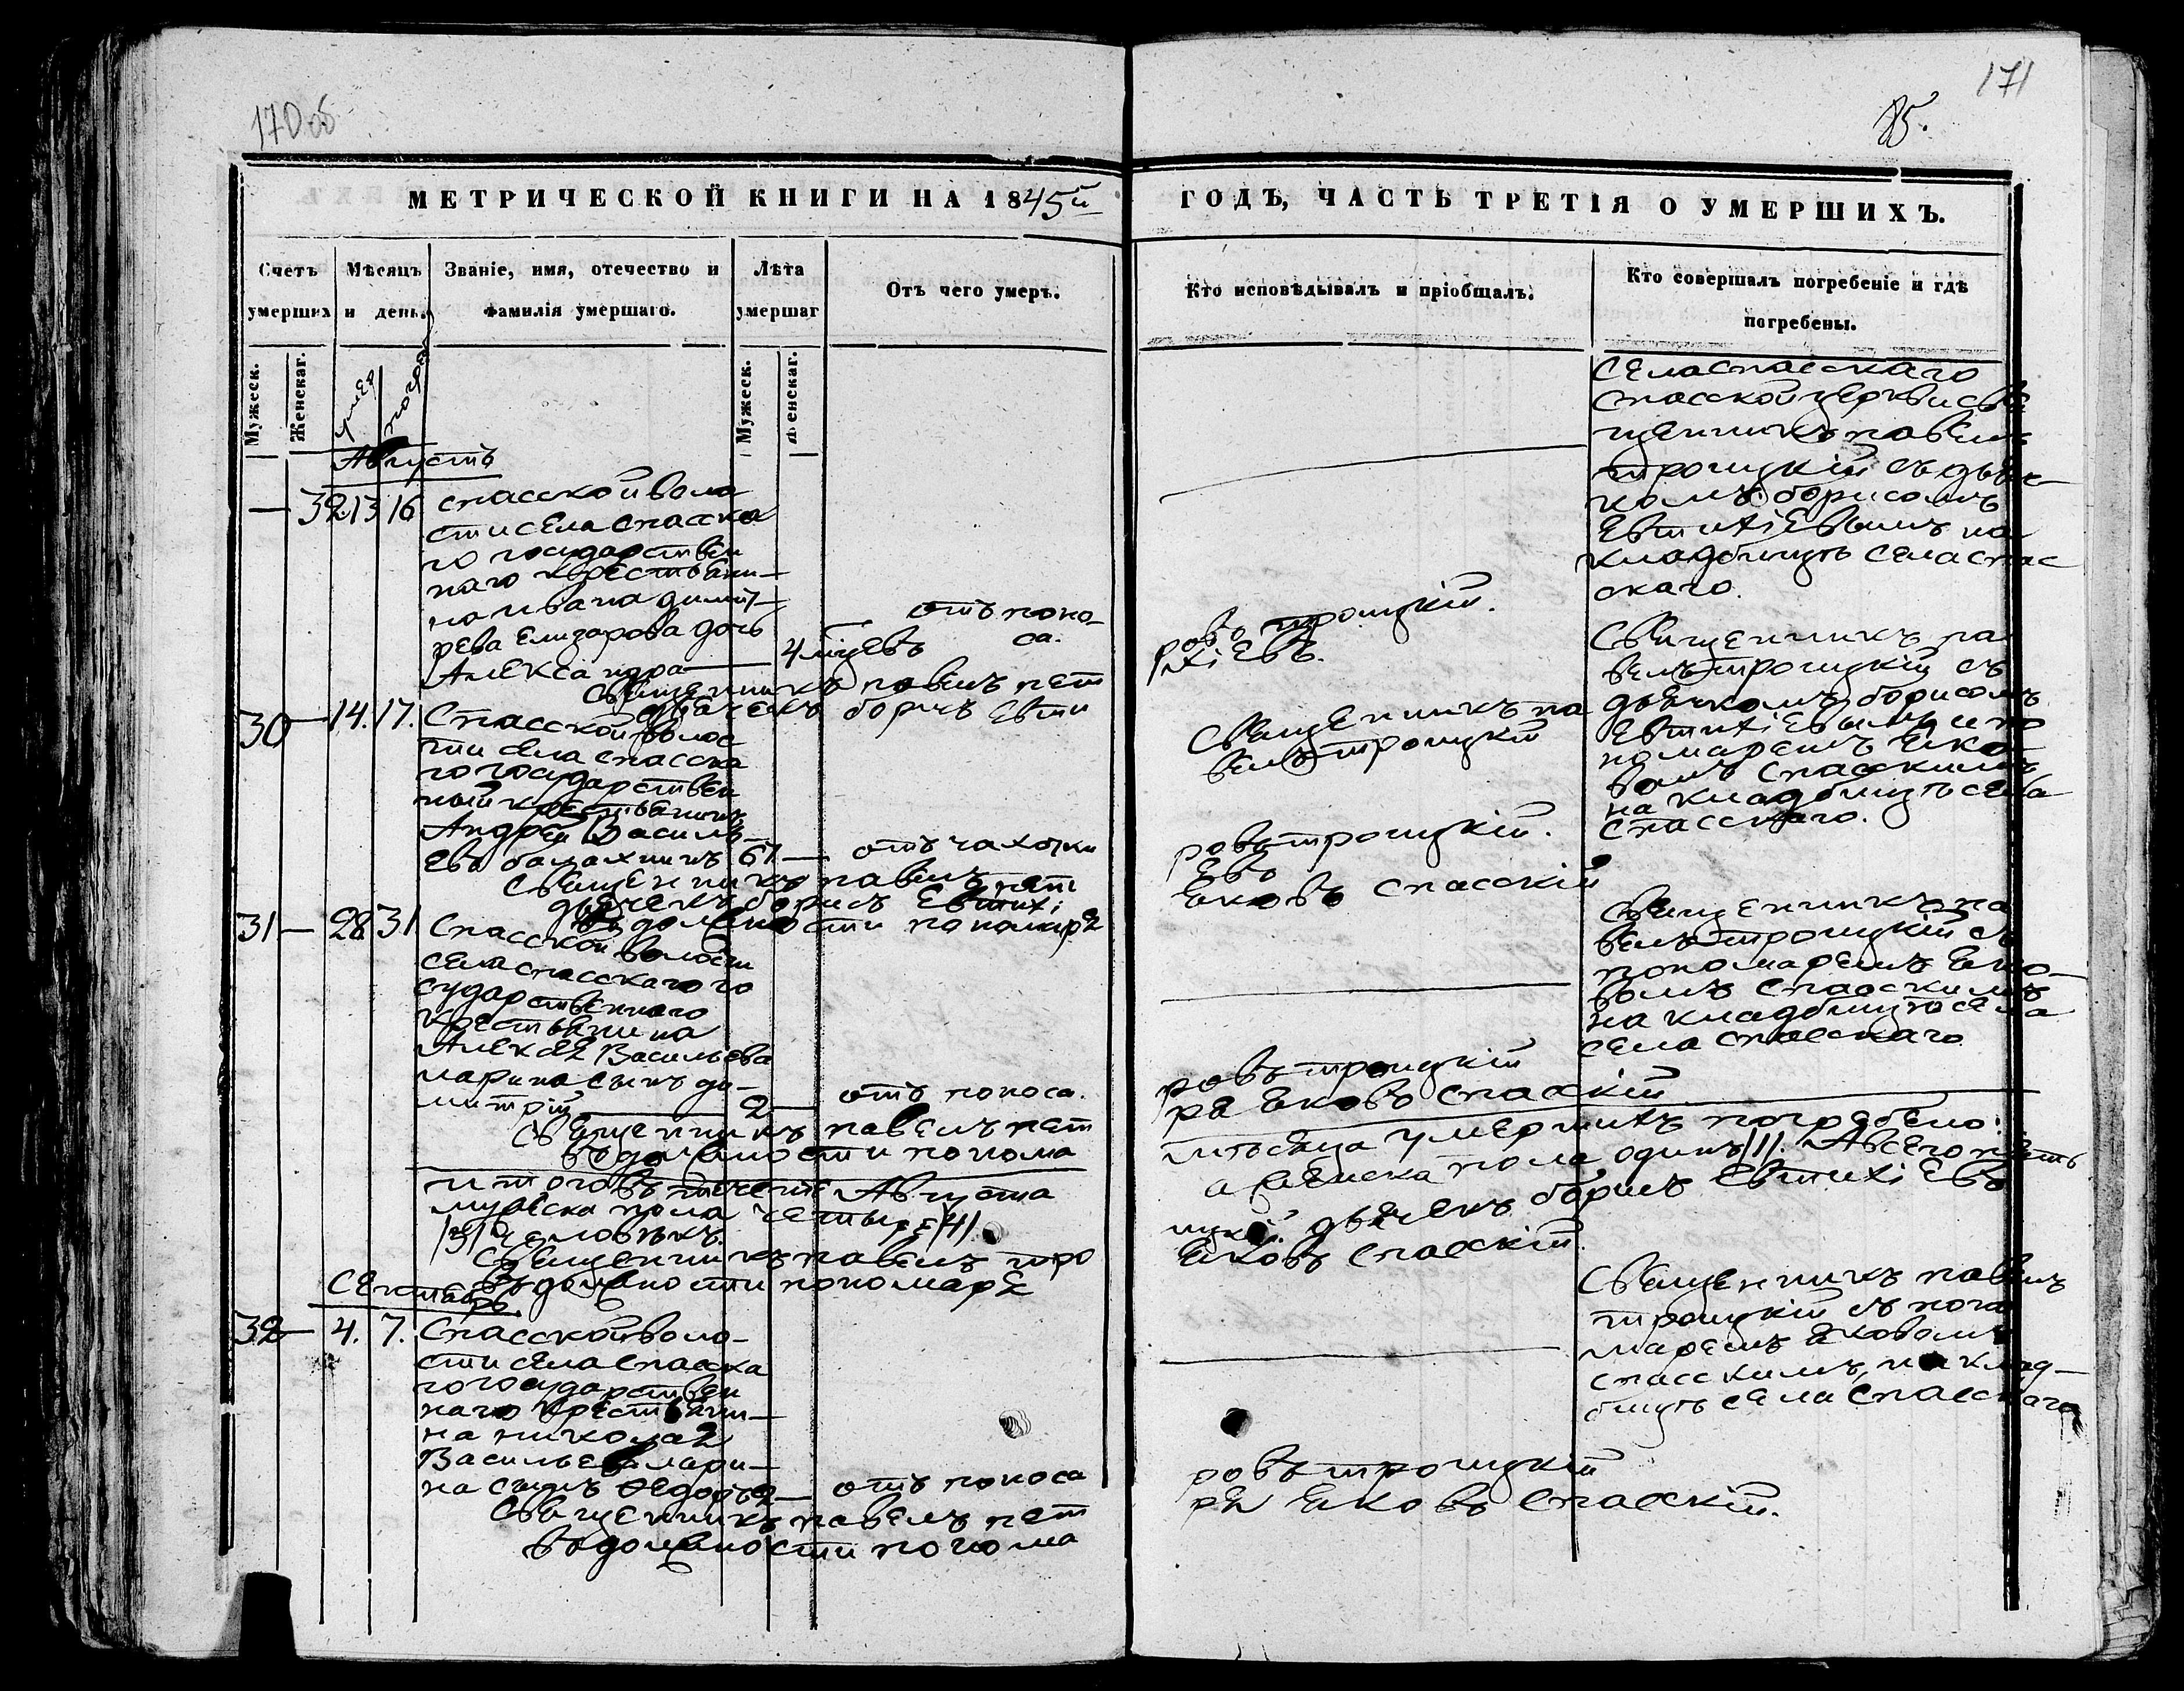 170 об
171
85.
МЕТРИЧЕСКОЙ КНИГИ НА 1845й
ГОДЪ, ЧАСТЬ ТРЕТІЯ О УМЕРШИХЪ.
Счетъ умерших
Мѣсяцъ и день.
Званіе, имя, отечество и фамилія умершаго.
Лѣта умершаг
Отъ чего умеръ.
Кто исповѣдывалъ и пріобщалъ.
Кто совершалъ погребеніе и гдѣ погребены.
Мужеск.
Женскаг.
Мужеск.
Женскаг.
Августъ
— 32 13 16 Спасской воло
сти села Спасска
го государствен
наго крестьяни—
на Ивана Димит—
рева Елизарова дочь
Александра — 4 мѣсцевъ
отъ поно-
са.
Села Спасскаго
Спасской церкви свя
щенникъ Павелъ
Троицкій съ дьяч-
комъ Борисомъ
Евтихіевымъ на
кладбищѣ села Спас
скаго.
Священникъ Павелъ Пет
ровъ Троицкій.
дьячекъ Борисъ Евти
хіевъ.
30 — 14. 17. Спасской волос
ти села Спасска
го государствен
ный крестьянинъ
Андрей Василь
евъ Балахнинъ 67 — отъ чахотки
Священникъ Па
велъ Троицкій
Священникъ Па
велъ Троицкій съ
дьячкомъ Борисомъ
Евтихіевымъ и по
номаремъ Яко
вомъ Спасскимъ
на кладбищѣ села
Спасскаго.
Священникъ Павелъ Пет
ровъ Троицкій.
дьячекъ Борисъ Евтихі
евъ
въ должности пономаря
Яковъ Спасскій
31 — 28 31 Спасской волости
села Спасскаго го
сударственнаго
крестьянина
Алексея Васильева
Ларина сынъ Ди—
митрій — 2 — отъ поноса.
Священникъ Па
велъ Троицкій съ
пономаремъ Яко—
вомъ Спасскимъ
на кладбищѣ села
села Спасскаго
Священникъ Павелъ Пет
ровъ Троицкій
въ должности понома
ря Яковъ Спасскій
Итого въ Августа
мѣсяца умершихъ погребено:
мужеска пола четыре /4/
а женска пола одинъ /1/. А всего пять
/5/ человѣкъ.
Священникъ Павелъ Тро
ицкій. дьячекъ Борисъ Евтихіевъ
въ должности пономаря
Яковъ Спасскій.
Сентябрь
32 — 4. 7. Спасской воло—
сти села Спасска
го государствен
наго крестьяни—
на Николая
Васильева Лари—
на сынъ Ѳедоръ 2 — отъ поноса
Священникъ Павелъ
Троицкій съ поно
маремъ Яковомъ
Спасскимъ, на клад—
бищѣ села Спасскаго
Священникъ Павелъ Пет
ровъ Троицкій
въ должности понома
ря Яковъ Спасскій.